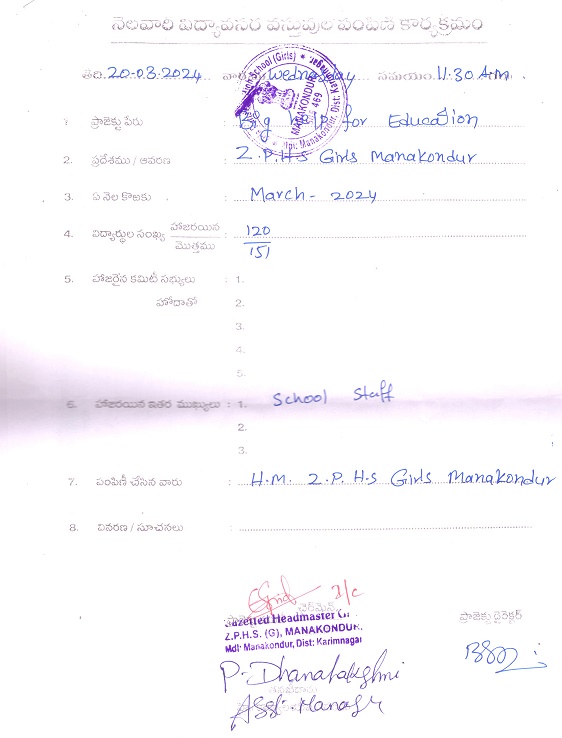 నెలవారి విద్యావసర వస్తువుల పంపిణి కార్యక్రమం
తేది. 20-03-2024 వారం Wednesday సమయం. 11.30 A.m.
High School (Girls)
MANAKONDUR
469
Mpl: Manakondur, Dist: Karimnagar
1 ప్రాజెక్టు పేరు : Big Help for Education
2. ప్రదేశము / ఆవరణ : Z.P.H.S Girls Manakondur
3. ఏ నెల కొఱకు : March - 2024
4. విద్యార్థుల సంఖ్య హాజరయిన : 120
మొత్తము 151
5. హాజరైన కమిటీ సభ్యులు : 1.
హోదాతో 2.
3.
4.
5.
6. హాజరయిన ఇతర ముఖ్యులు : 1. School Staff
2.
3.
7. పంపిణీ చేసిన వారు : H.M. Z.P.H.S Girls Manakondur
8. వివరణ / సూచనలు :
I/c
చైర్మెన్
ప్రాజెక్టు డైరెక్టర్
Gazetted Headmaster
Z.P.H.S. (G), MANAKONDUR.
Mdl: Manakondur, Dist: Karimnagar
P. Dhanalakshmi
Asst. Manager